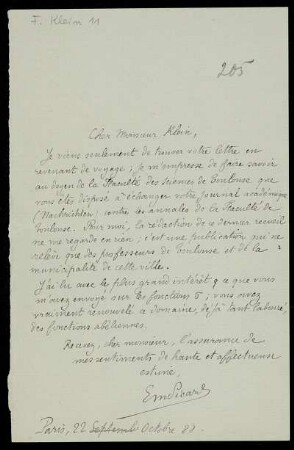 F. Klein 11
205
Cher Monsieur Klein,
Je viens seulement de trouver votre lettre en
revenant de voyage; je m'empresse de faire savoir
au doyen de la Faculté des Sciences de Toulouse que
vous êtes disposé à échanger votre journal académique
(Nachrichten) contre les annales de la Faculté de
Toulouse. Pour moi, la rédaction de ce dernier recueil
ne me regarde en rien; c'est une publication qui ne
relève que des professeurs de Toulouse et de la
municipalité de cette ville.
J'ai lu avec le plus grand intérêt ce que vous
m'avez envoyé sur les fonctions σ; vous avez
vraiment renouvelé ce domaine, déjà tant labouré,
des fonctions abéliennes.
Recevez, cher monsieur, l'assurance de
mes sentiments de haute et affectueuse
estime,
Em Picard
Paris, 22 Septemb Octobre 88.